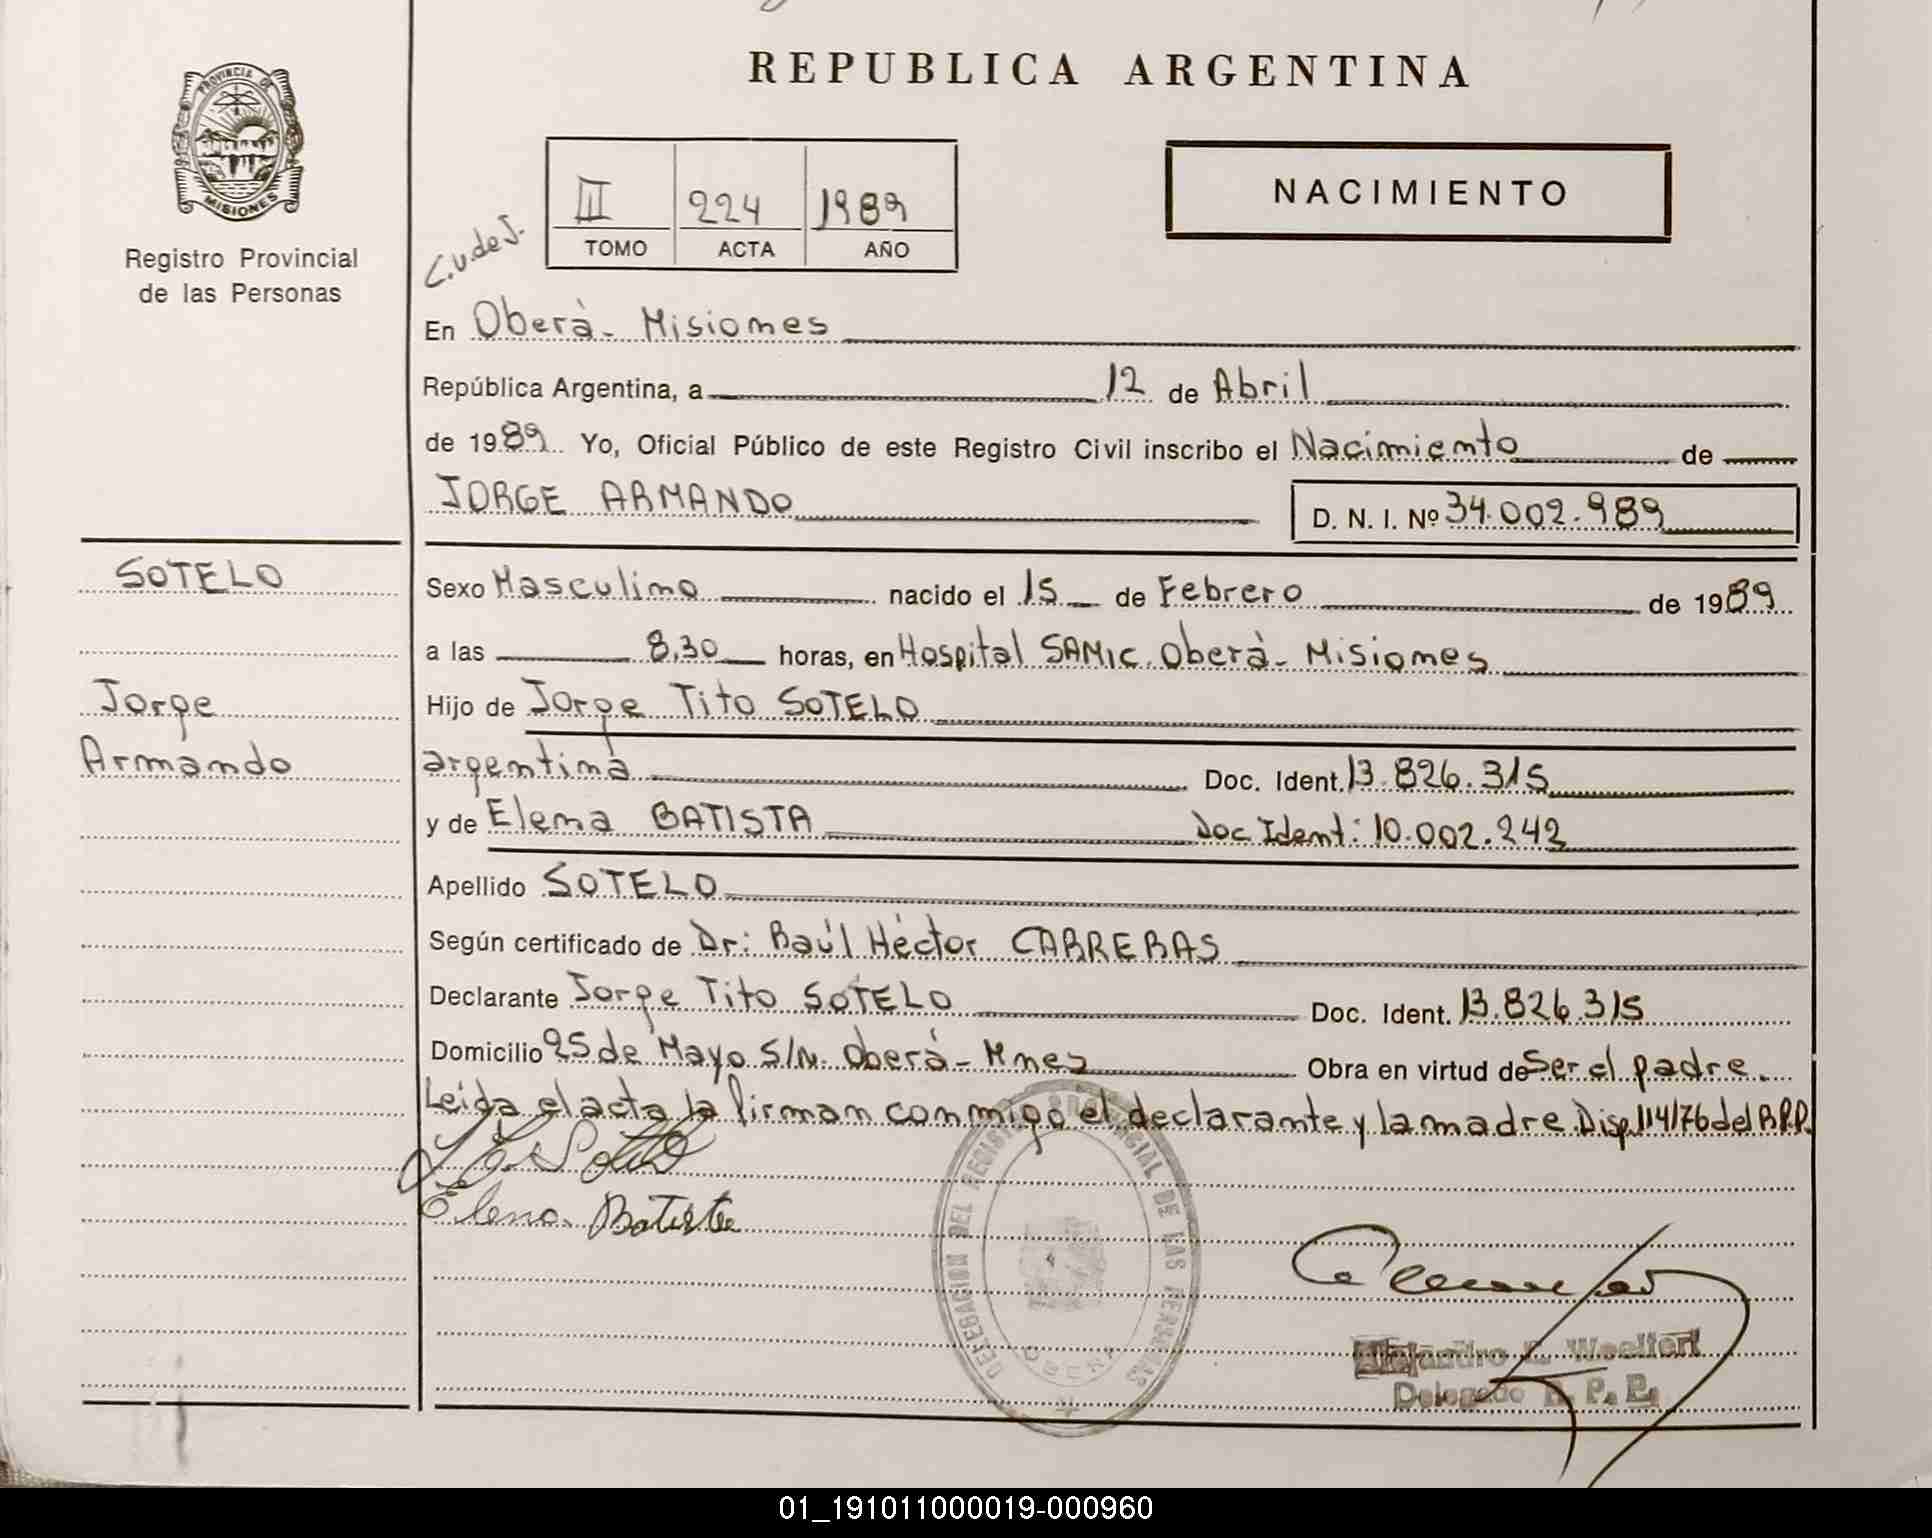 REPUBLICA ARGENTINA
PROVINCIA DE
MISIONES
Registro Provincial
de las Personas
III 224 1989
TOMO ACTA AÑO
NACIMIENTO
C.V.deJ.
En Oberà - Misiones
República Argentina, a 12 de Abril
de 1989 Yo, Oficial Público de este Registro Civil inscribo el Nacimiento de
JORGE ARMANDO D. N. I. Nº 34.002.989
SOTELO
Sexo Masculino nacido el 15 de Febrero de 1989
a las 8,30 horas, en Hospital SAMIC. Oberà - Misiones
Jorge
Hijo de Jorge Tito SOTELO
Armando
argentina Doc. Ident. 13.826.315
y de Elena BATISTA Doc Ident: 10.002.242
Apellido SOTELO
Según certificado de Dr: Raúl Héctor CARRERAS
Declarante Jorge Tito SOTELO Doc. Ident. 13.826.315
Domicilio 25 de Mayo S/N. Oberá - Mnes Obra en virtud de Ser el padre.
Leida el acta la firman conmigo el declarante y la madre. Disp. 114/76 del R.P.P.
Elena Batista
DELEGACION DEL REGISTRO PROVINCIAL DE LAS PERSONAS
OBERA
Alejandro
Delegado R. P. P.
01_191011000019-000960